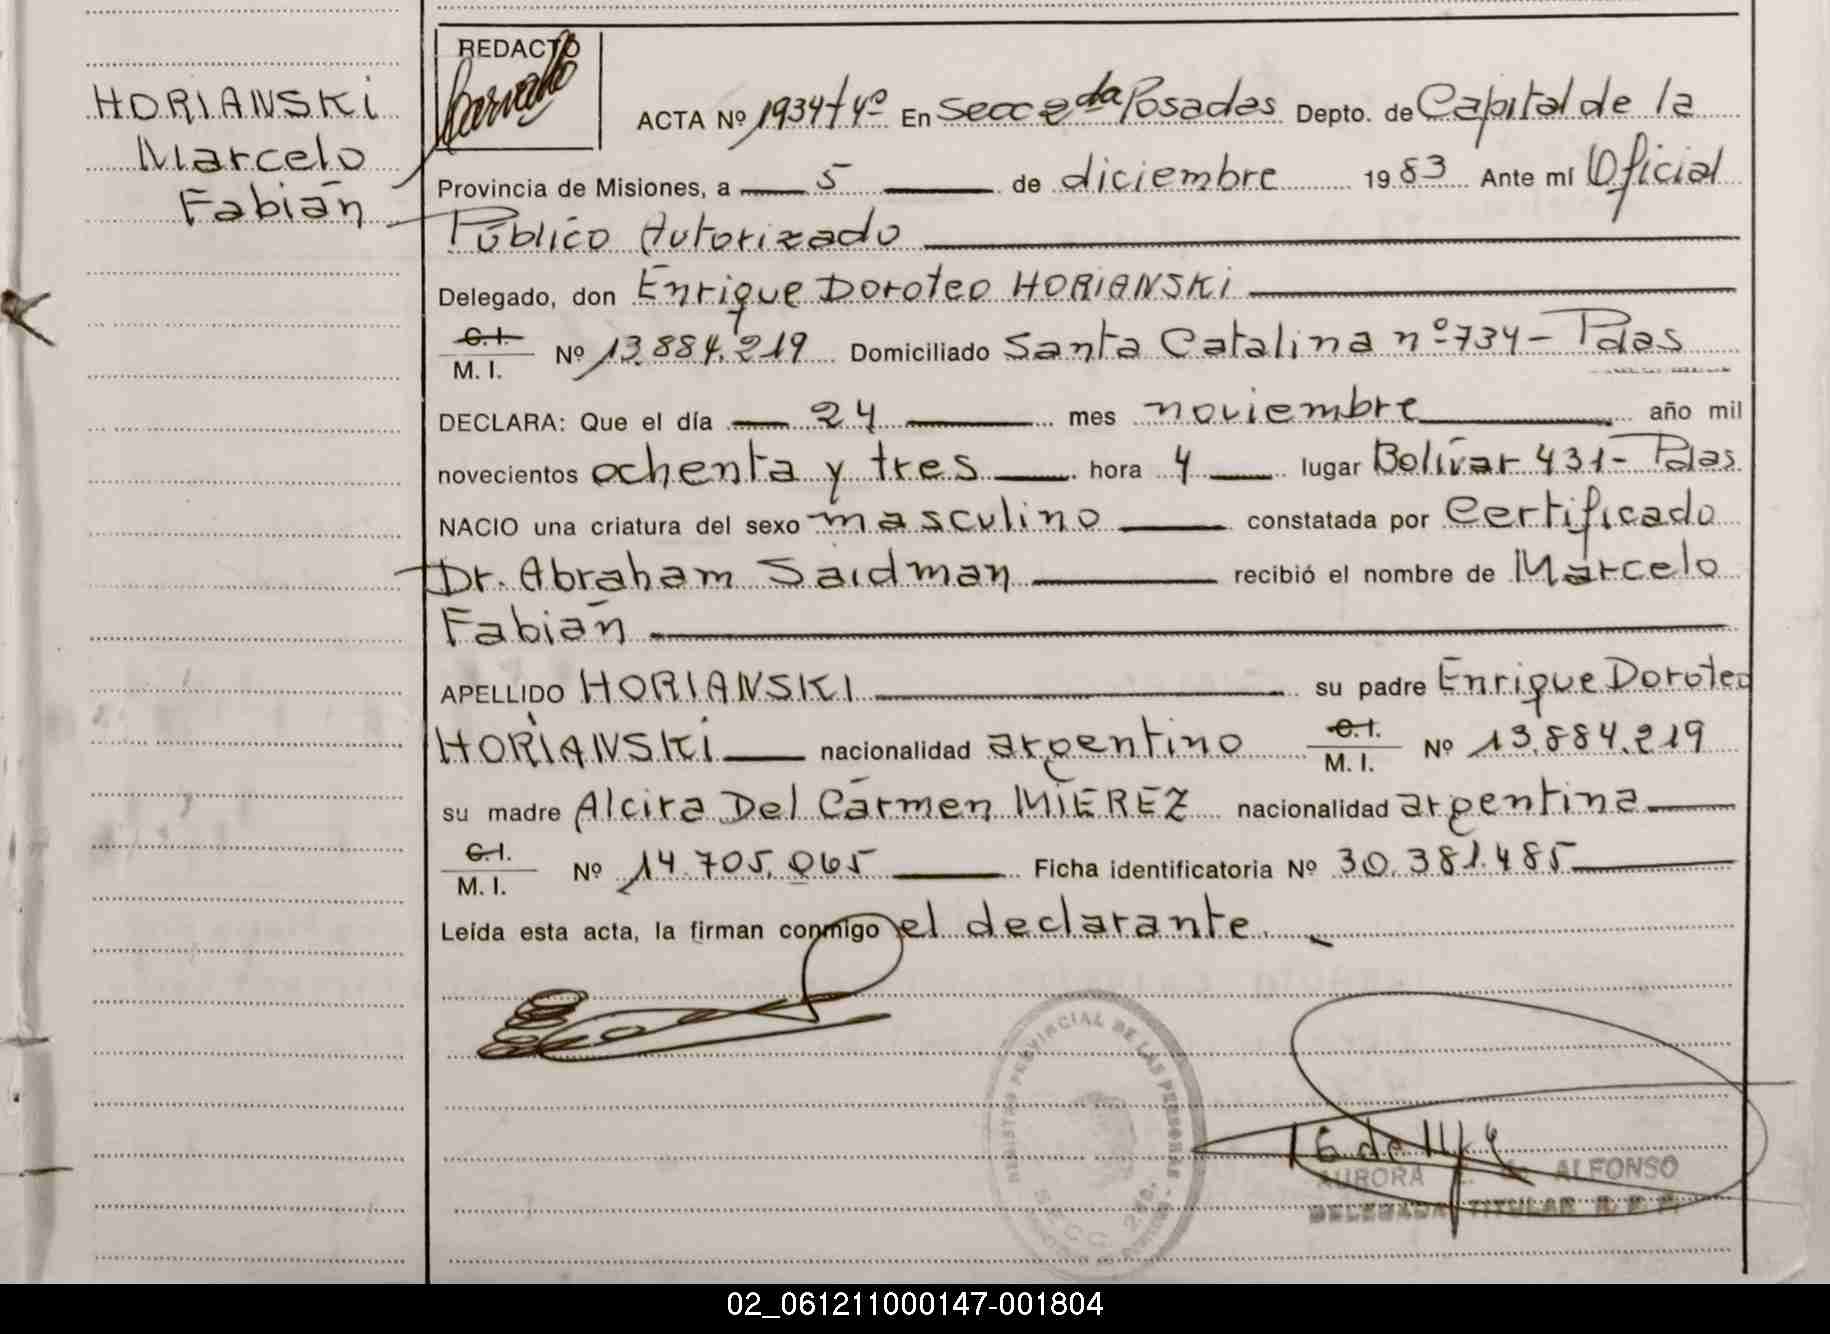 HORIANSKI
Marcelo
Fabián
REDACTO
ACTA Nº 1934 t 4º En Secc 2da Posadas Depto. de Capital de la
Provincia de Misiones, a 5 de diciembre 1983 Ante mí Oficial
Público Autorizado
Delegado, don Enrique Doroteo HORIANSKI
C.I.
M. I. Nº 13.884.219 Domiciliado Santa Catalina nº 734 - Pdas
DECLARA: Que el día 24 mes noviembre año mil
novecientos ochenta y tres hora 4 lugar Bolívar 431 - Pdas
NACIO una criatura del sexo masculino constatada por Certificado
Dr. Abraham Saidman recibió el nombre de Marcelo
Fabián
APELLIDO HORIANSKI su padre Enrique Doroteo
HORIANSKI nacionalidad argentino C.I.
M. I. Nº 13.884.219
su madre Alcira Del Cármen MIEREZ nacionalidad argentina
C.I.
M. I. Nº 14.705.065 Ficha identificatoria Nº 30.381.485
Leída esta acta, la firman conmigo el declarante.
REGISTRO PROVINCIAL DE LAS PERSONAS
SECC. 2da.
AURORA ALFONSO
DELEGADA TITULAR R. P. P.
02_061211000147-001804